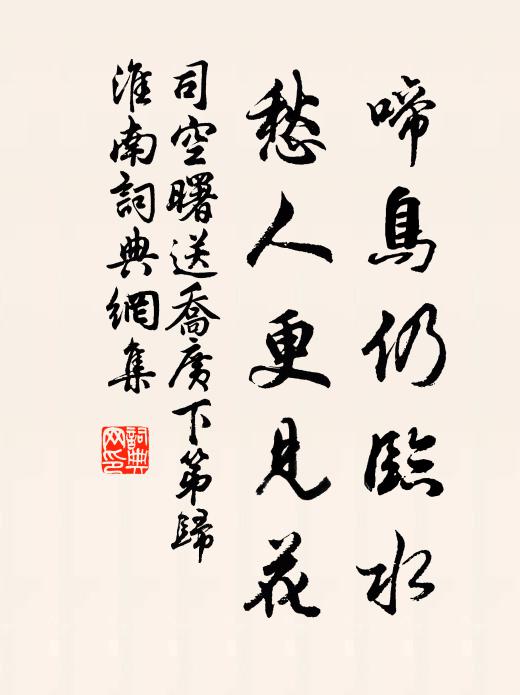 啼鳥仍臨水
愁人更見花
司空曙送喬廣下第歸
淮南詞典網集
詞典
网印